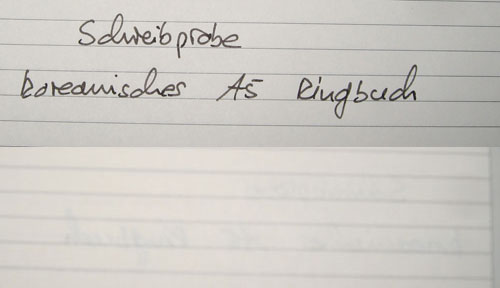 Schreibprobe
koreanisches A5 Ringbuch